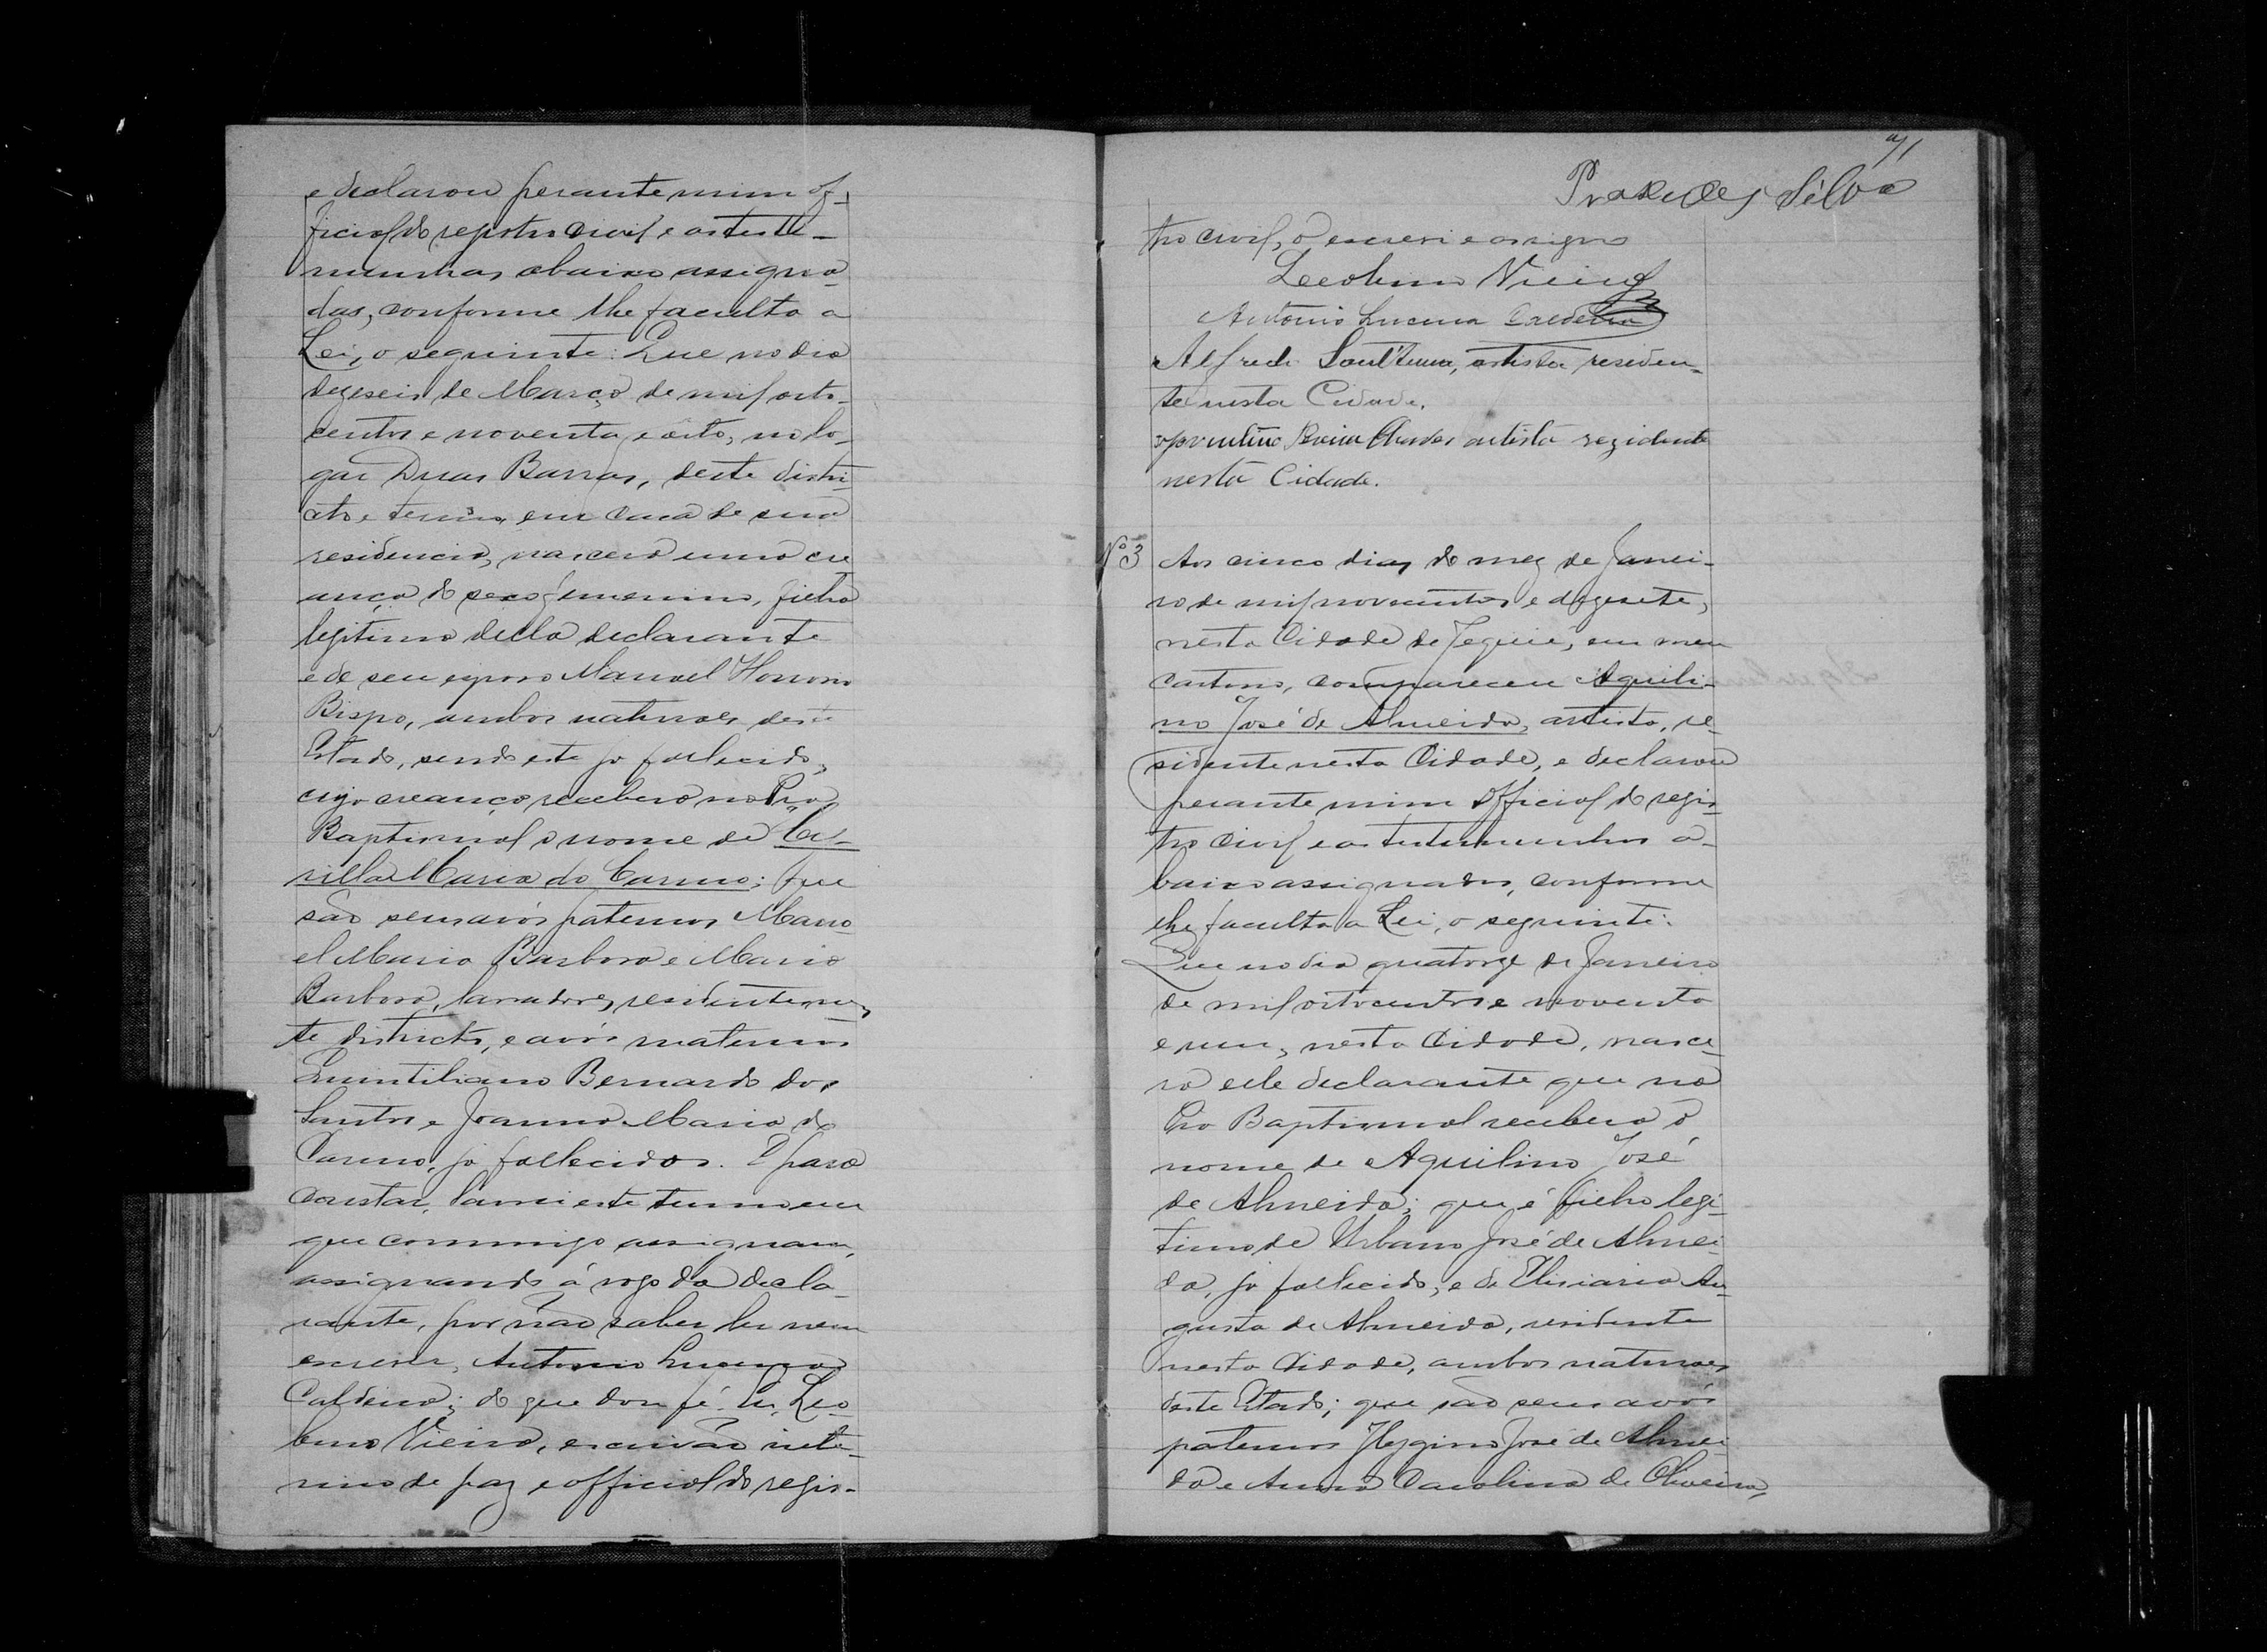 e declarou perante mim of-
ficial do registro civil e as teste-
munhas abaixo assigna-
das, conforme lhe faculta a
Lei, o seguinte: Que no dia
dezeseis de Março de mil oito-
centos e noventa e oito, no lo-
gar Duas Barras, deste distri-
cto e termo, em casa de sua
residencia, nascera uma cre
ança do sexo femenino, filha
legitima della declarante
e de seu esposo Manoel Honorio
Bispo, ambos naturaes deste
Estado, sendo este já fallecido,
cuja creança recebera na Pia
Baptismal o nome de
Maria do Carmo; que
são seus avós paternos Mano
el Maria Barbosa e Maria
Barbosa, lavradores, residentes nes
te districto, e avós maternos
Quintiliano Bernardo dos
Santos e Joanna Maria do
Carmo, já fallecidos. E para
constar, lavrei este termo em
que commigo assignam,
assignando á rogo da decla-
rante, por não saber ler nem
escrever, Antonio Lucena
Caldeira; do que dou fé. Eu, Leo
lino Vieira, escrivão inte-
rino de paz e official do regis-
71
Praxedes Silva
tro civil, o escrevi e assigno
Leolino Vieira
Antonio Lucena Caldeira
Alfredo Sant'Anna, artista residen-
te nesta Cidade.
artista rezidente
nesta Cidade.
Nº 3
Aos cinco dias do mez de Janei-
ro de mil novecentos e dezesete,
nesta Cidade de Jequié, em meu
cartorio, compareceu Aquili-
no José de Almeida, artista, re-
sidente nesta Cidade, e declarou
perante mim Official do regis-
tro civil e as testemunhas a-
baixo assignadas, conforme
lhe faculta a Lei, o seguinte:
Que no dia quatorze de Janeiro
de mil oitocentos e noventa
e um, nesta Cidade, nasce-
ra elle declarante que na
Pia Baptismal recebera o
nome de Aquilino José
de Almeida; que é filho legi-
timo de Urbano José de Almei-
da, já fallecido, e de Elisiaria Au-
gusta de Almeida, residente
nesta Cidade, ambos naturaes
deste Estado; que são seus avós
paternos Hyggino José de Almei
da e Anna Carolina de Oliveira,